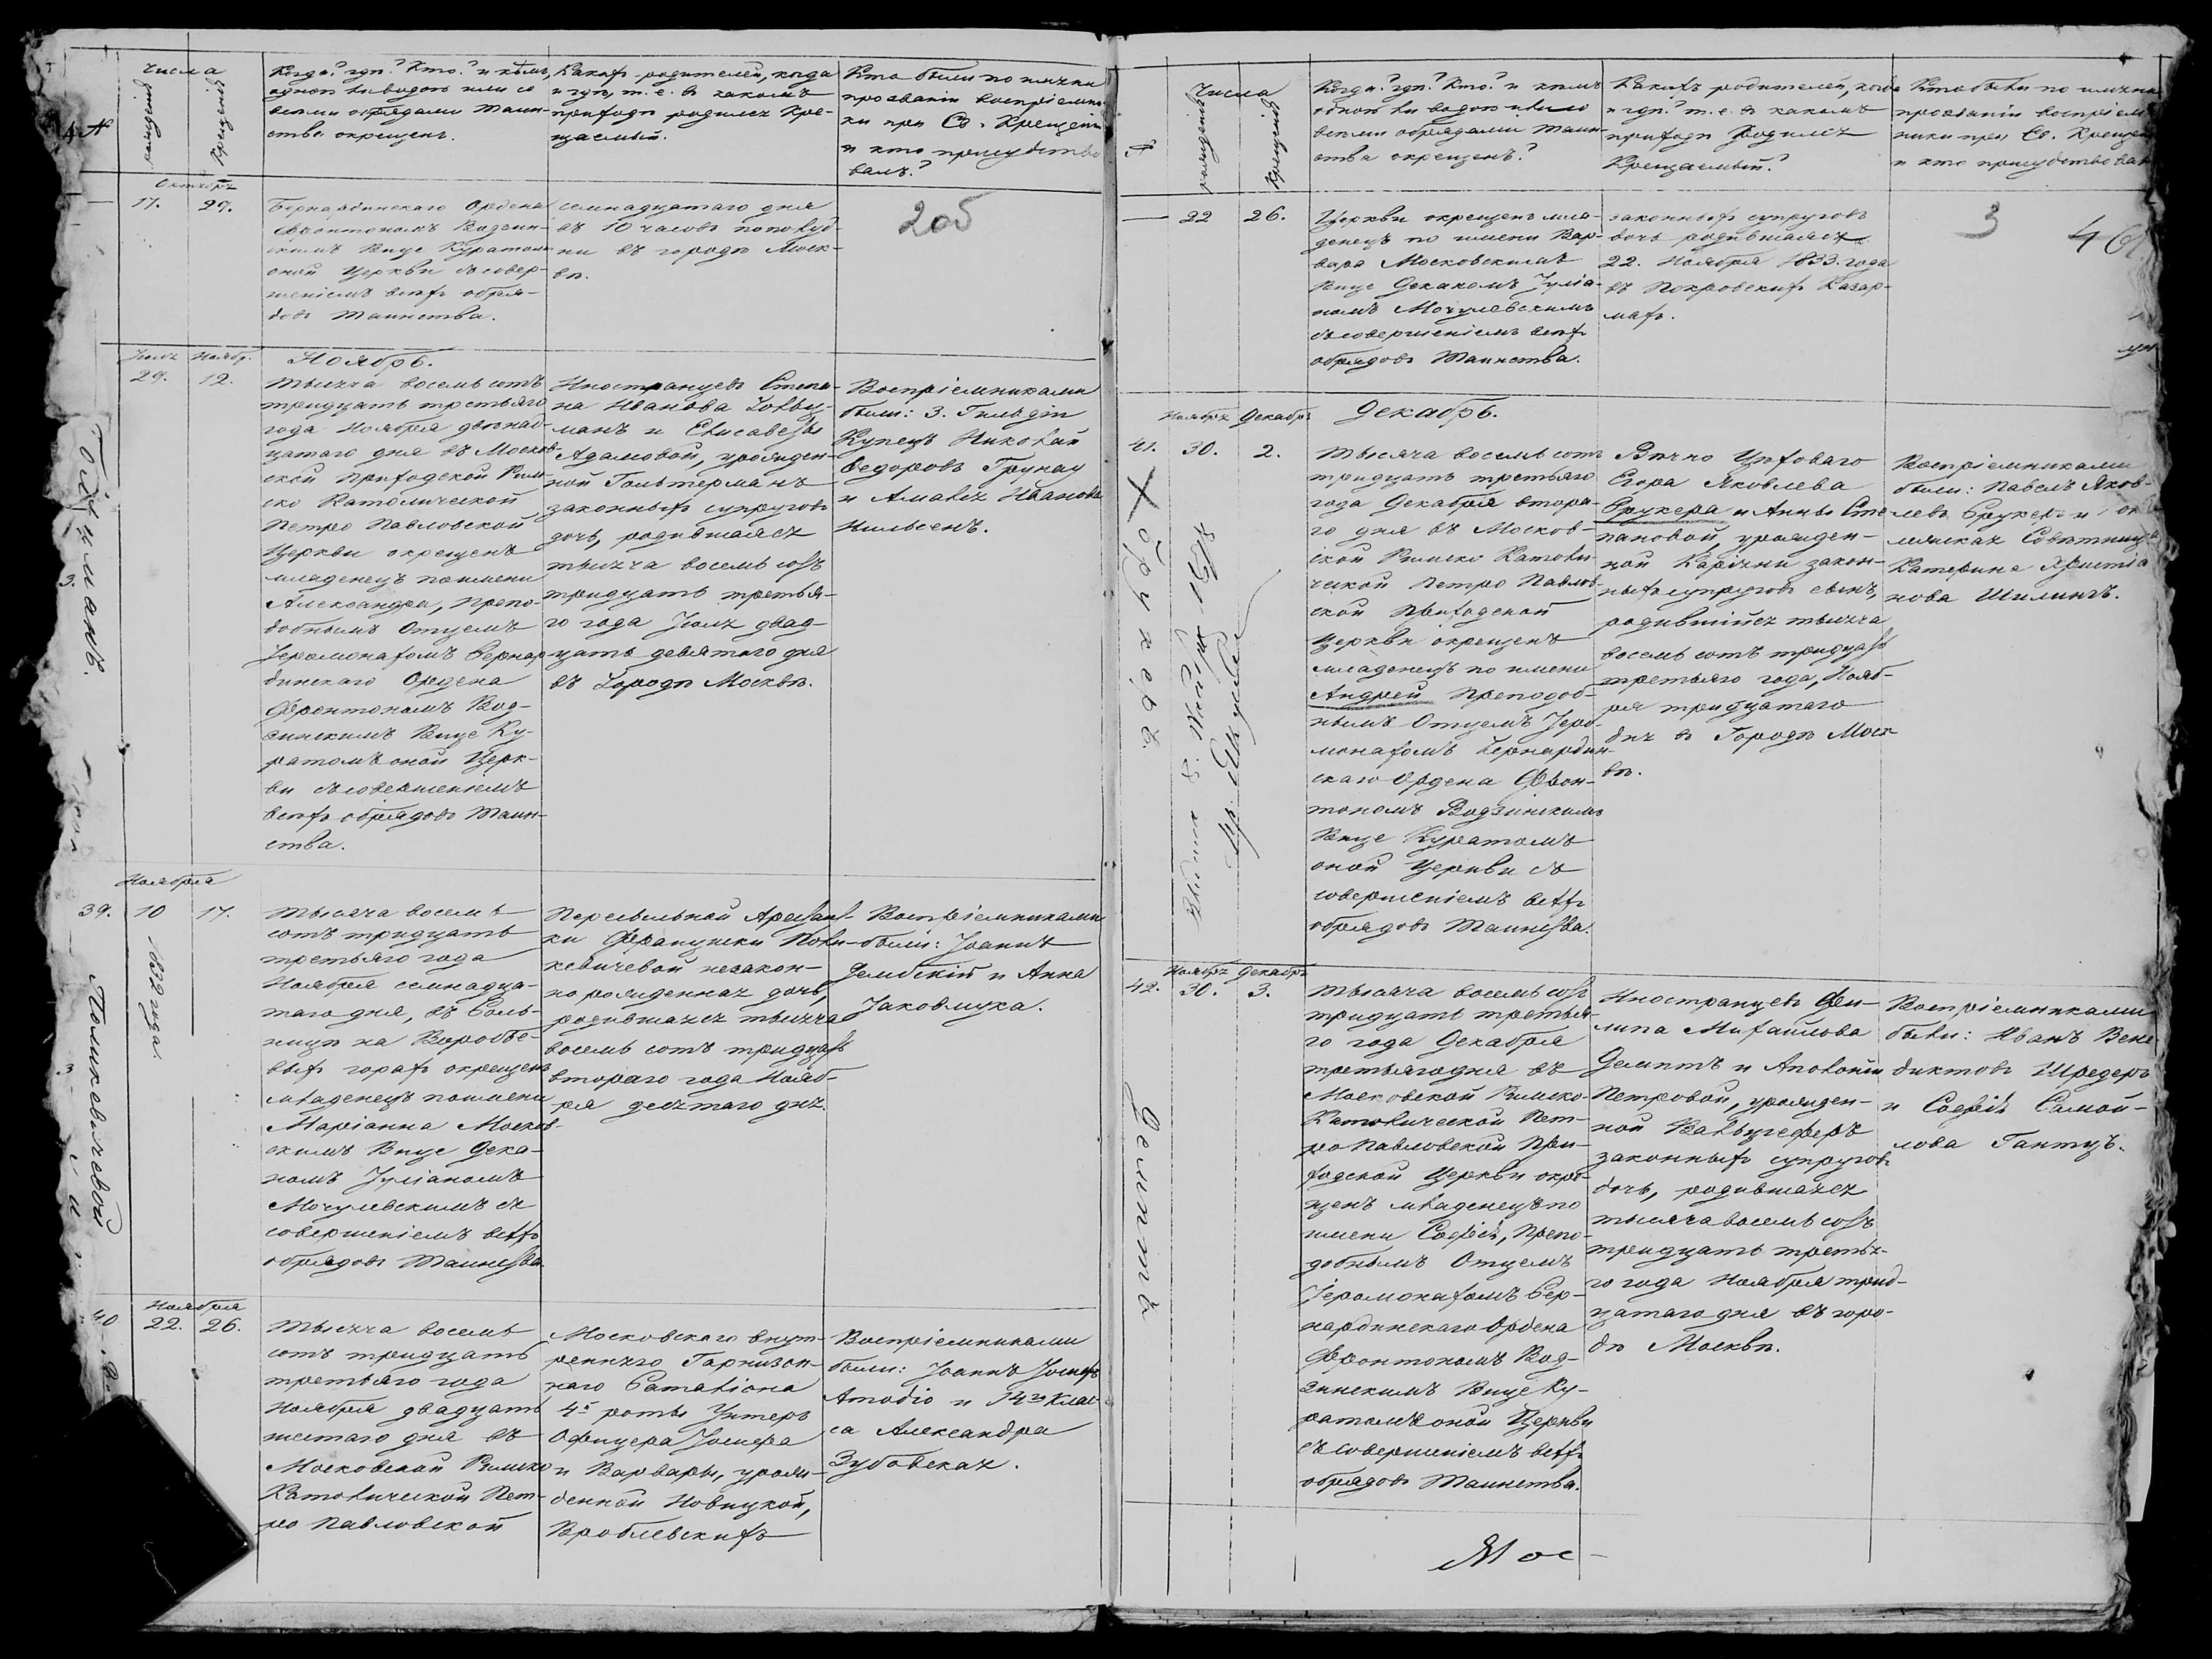 Числа
рожденія
крещенія
№
Когда? гдѣ? Кто? и кѣмъ,
одной ли водою или со
всѣми обрядами Таин-
ства окрещенъ.
Какихъ родителей, когда
и гдѣ, т. е. въ какомъ
приходѣ родился Кре-
щаемый.
Кто были по имени
прозванію воспріемни-
ки при Св. Крещеніи
и кто присудство
валъ?
Октября
17. 29.
Бернардинскаго Ордена
Фронтономъ Водзин-
скимъ Вице Куратомъ
оной Церкви съ совер-
шеніемъ всѣхъ обря-
довъ Таинства.
семнадцатаго дня
въ 10 часовъ пополуд-
ни въ городѣ Моск-
вѣ.
205
Іюля Ноябр.
29. 12.
Гольцманъ.
Ноябрь.
тысяча восемь сотъ
тридцать третьяго
года Ноября двенад-
цатаго дня въ Москов-
ской приходской Рим-
ско Католической
Петро Павловской
Церкви окрещенъ
младенецъ по имени
Александра, Препо-
добнымъ Отцемъ
Іеромонахомъ Бернар
динскаго Ордена
Фронтономъ Вод-
зинскимъ Вице Ку-
ратомъ оной Церк-
ви съ совершеніемъ
всѣхъ обрядовъ Таин-
ства.
Иностранцевъ Степа-
на Иванова
и Елисаветы
Адамовой, урожден-
ной Гольтерманъ
законныхъ супруговъ
дочь, родившаяся
тысяча восемь сотъ
тридцать третья-
го года Іюля двад-
цать девятаго дня
въ Городѣ Москвѣ.
Воспріемниками
были: 3. Гильдіи
Купецъ Николай
Федоровъ Грунау
и Амалія Иванова
Нильсенъ.
Ноября
39. 10 17.
1832 года
Поликевичевой
тысяча восемь
сотъ тридцать
третьяго года
Ноября семнадца-
таго дня, въ Боль-
ницѣ на Воробье-
выхъ горахъ окрещенъ
младенецъ по имени
Маріанна Москов-
скимъ Вице Дека-
номъ Іуліаномъ
Мочулевскимъ съ
совершеніемъ всѣхъ
обрядовъ Таинства.
Пересыльной Арестант-
ки Францишки Поли-
кевичевой незакон-
но рожденная дочь,
родившаяся тысяча
восемь сотъ тридцать
втораго года Нояб-
ря десятаго дня.
Воспріемниками
были: Іоаннъ
Дембскій и Анна
Іаковлука.
Ноября
40 22. 26.
тысяча восемь
сотъ тридцать
третьяго года
Ноября двадцать
шестаго дня въ
Московской Римско
Католической Пет-
ро Павловской
Московскаго внут-
ренняго Гарнизон-
наго Баталіона
4й роты Унтеръ
Офицера Іосифа
и Варвары, урож-
денной Новицкой,
Вроблевскихъ
Воспріемниками
были: Іоаннъ Іосифъ
Амодіо и 14го Клас-
са Александра
Зубовская.
№
Числа
рожденія
крещенія
Когда? гдѣ? Кто? и кѣмъ
одной ли водою или со
всѣми обрядами Таин-
ства окрещенъ?
Какихъ родителей, когда
и гдѣ? т. е. въ какомъ
приходѣ родился
Крещаемый?
Кто были по имени
прозванію воспріем-
ники при Св. Крещен
и кто присудствовал
22 26.
Церкви окрещенъ мла-
денецъ по имени Вар-
вара Московскимъ
Вице Деканомъ Іуліа-
номъ Мочулевскимъ
съ совершеніемъ всѣхъ
обрядовъ Таинства.
законныхъ супруговъ
дочь родившаяся
22. Ноября 1833. года
въ Покровскихъ Казар-
махъ.
3 461
Ноября Декабря
41. 30. 2.
Брукеръ.
Декабрь.
тысяча восемь сотъ
тридцать третьяго
года Декабря втора-
го дня въ Москов-
ской Римско Католи-
ческой Петро Павлов-
ской Приходской
Церкви окрещенъ
младенецъ по имени
Андрей Преподоб-
нымъ Отцемъ Іеро-
монахомъ Бернардин-
скаго Ордена Фрон-
тономъ Водзинскимъ
Вице Куратомъ
оной Церкви съ
совершеніемъ всѣхъ
обрядовъ Таинства.
Вѣчно Цеховаго
Егора Яковлева
Брукера и Анны Сте
пановой, урожден-
ной закон-
ныхъ супруговъ сынъ,
родившійся тысяча
восемь сотъ тридцать
третьяго года, Нояб-
ря тридцатаго
дня въ Городѣ Моск
вѣ.
Воспріемниками
были: Павелъ Яков-
левъ Брукеръ и
Совѣтница
Катерина Христіа
нова Шилингъ.
Ноября Декабря
42. 30. 3.
Демптъ
тысяча восемь сотъ
тридцать третья-
го года Декабря
третьяго дня въ
Московской Римско-
Католической Пет-
ро Павловской При-
ходской Церкви окре-
щенъ младенецъ по
имени Софія, Препо-
добнымъ Отцемъ
Іеромонахомъ Бер-
нардинскаго Ордена
Фронтономъ Вод-
зинскимъ Вице Ку-
ратомъ оной Церкви
съ совершеніемъ всѣхъ
обрядовъ Таинства.
Иностранцевъ Фи-
липа Михайлова
Демптъ и Аполоніи
Петровой, урожден-
ной
законныхъ супруговъ
дочь, родившаяся
тысяча восемь сотъ
тридцать третья-
го года Ноября трид-
цатаго дня въ горо-
дѣ Москвѣ.
Воспріемниками
были: Иванъ Вене
диктовъ Шредеръ
и Софія Самой-
лова Гантцъ.
Мос-